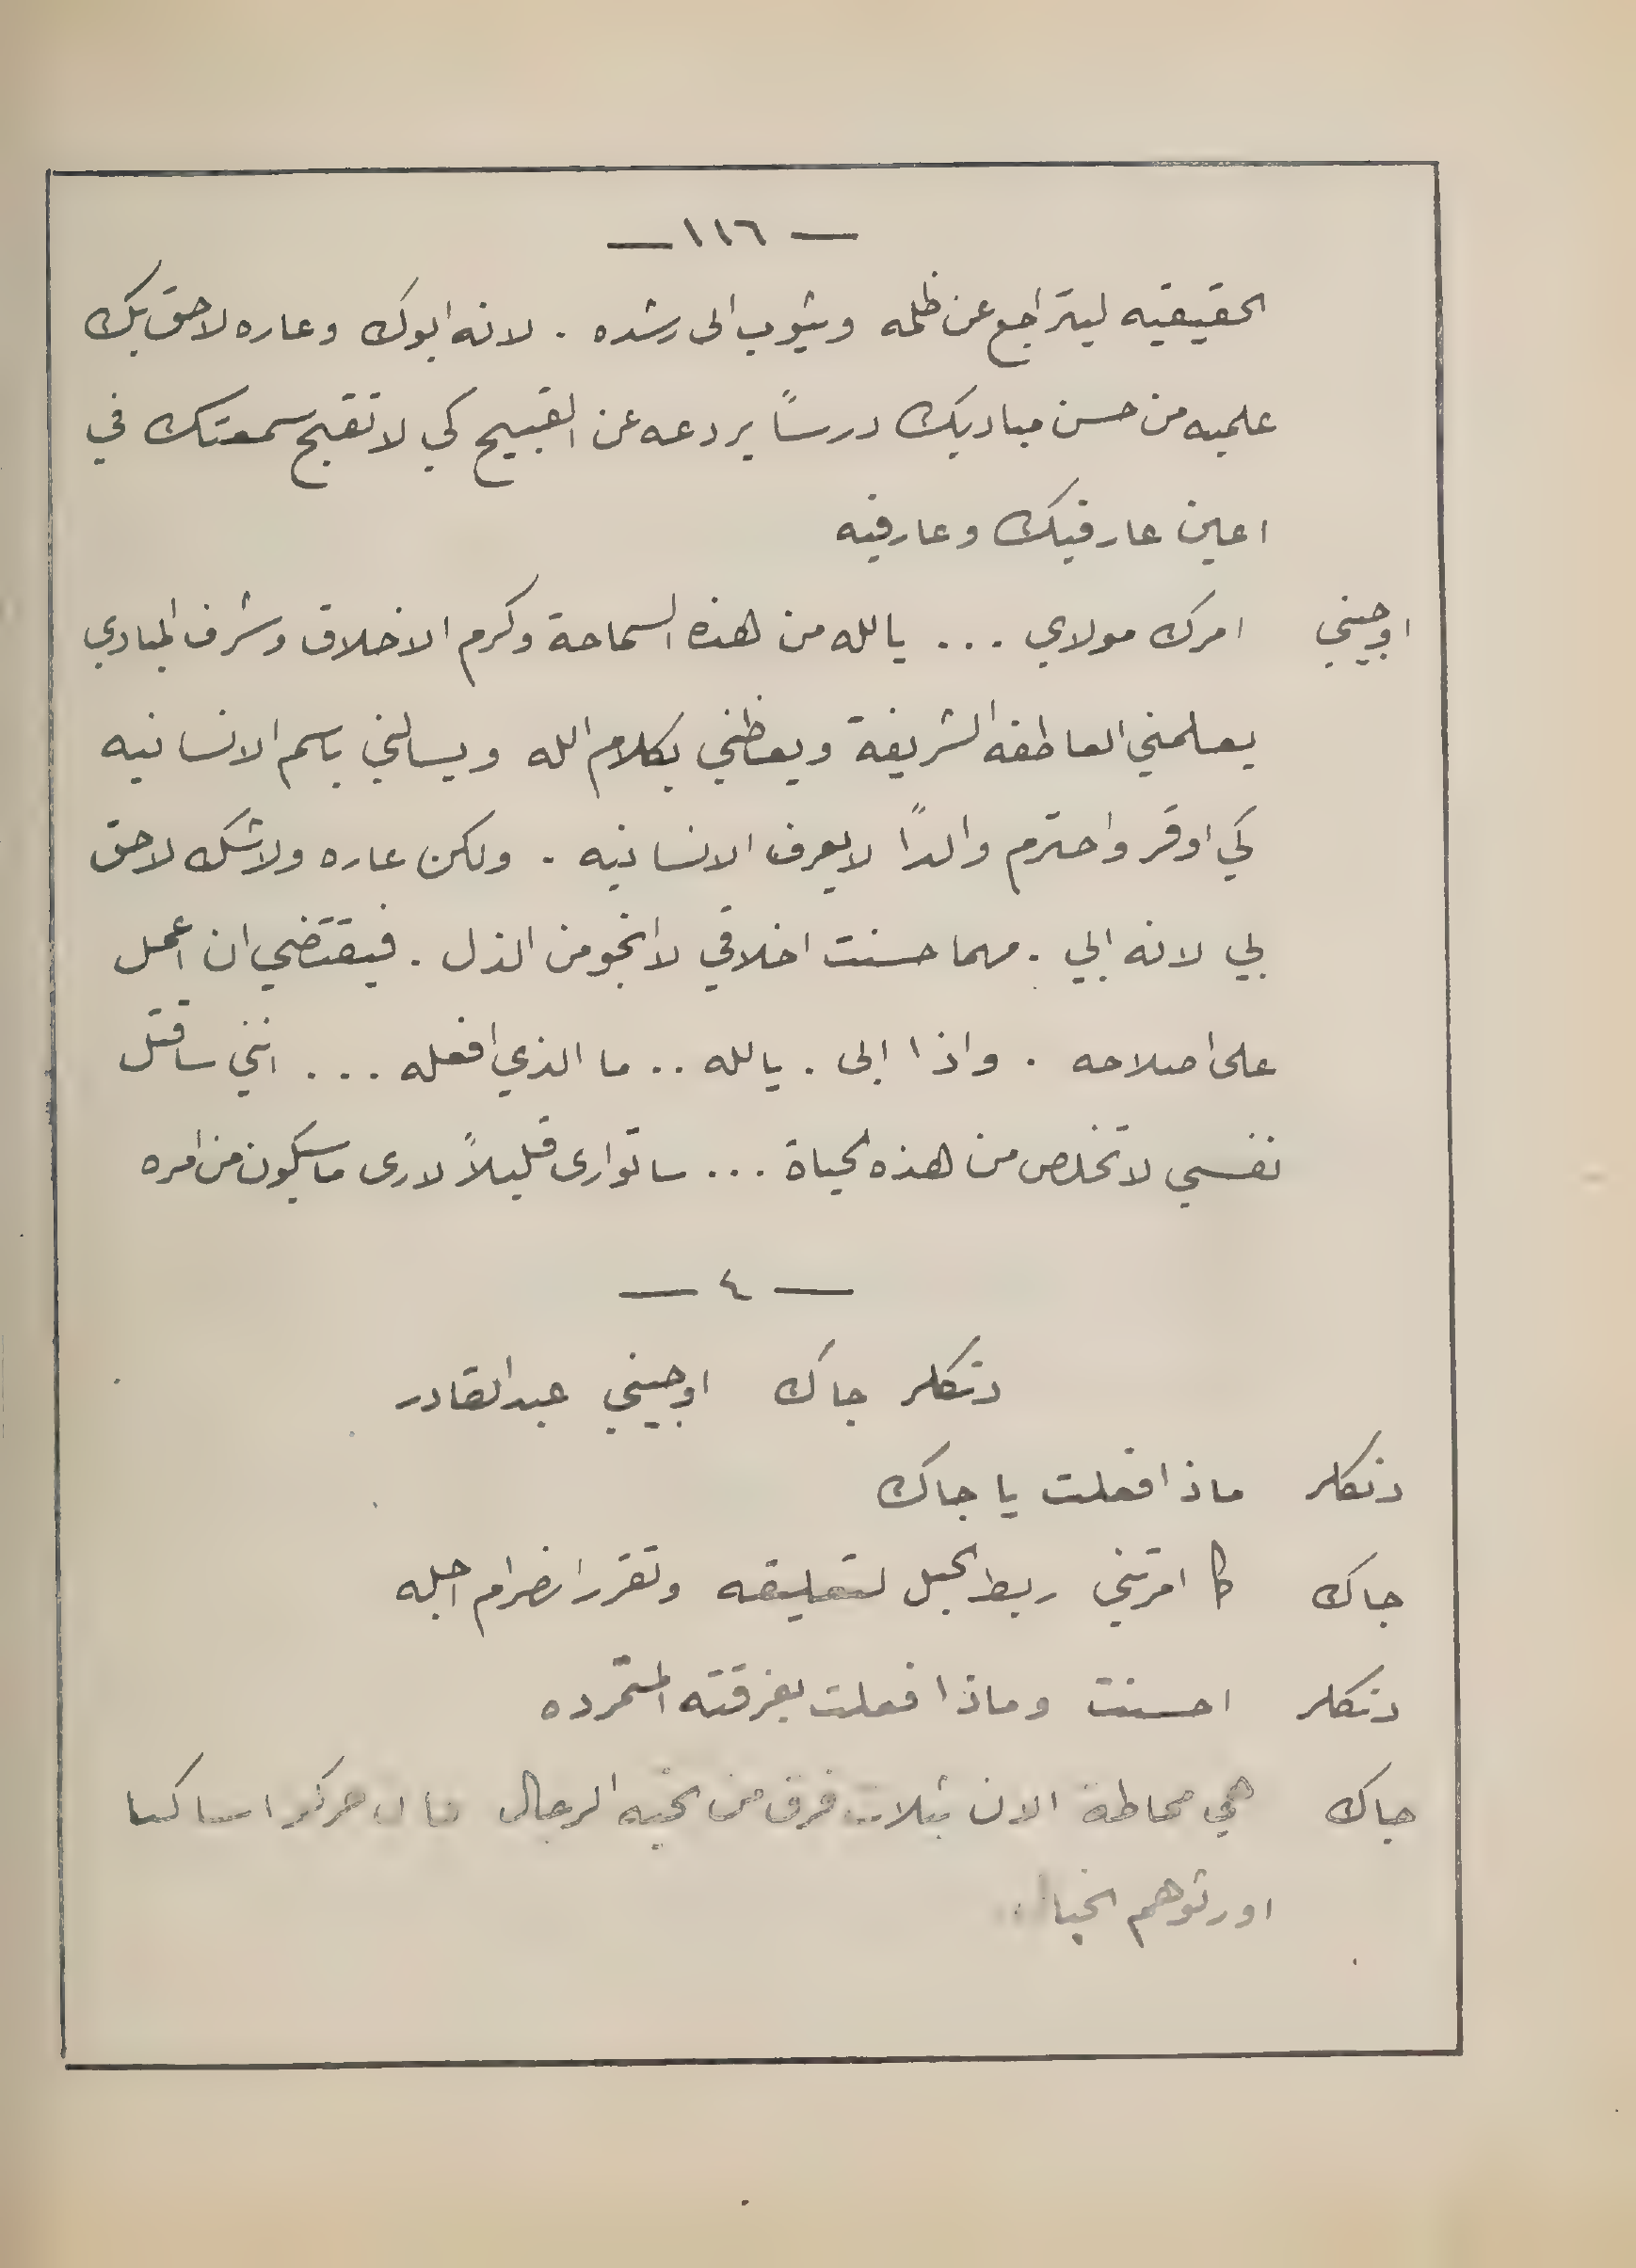 — ١١٦ —
الحقيقيه ليتراجع عن ظلمه ويثوب الى رشده . لانه ابوك وعاره لاحق بك
علميه من حسن مباديك درساً يردعه عن القبيح كي لا تقبح سمعتك في
اعين عارفيك وعارفيه
اوجيني امرك مولاي ... يالله من هذه السماحة وكرم الاخلاق وشرف المبادي
يعلمني العاطفه الشريفة ويعظني بكلام الله ويسالني باسم الانسانيه
كي اوقر واحترم والداً لا يعرف الانسانيه . ولكن عاره ولاشك لاحق
بي لانه ابي . مهما حسنت اخلاقي لا انجو من الذل . فيقتضي ان اعمل
على اصلاحه . واذا ابى . يالله .. ما الذي افعله ... انني ساقتل
نفسي لاتخلص من هذه الحياة ... ساتوارى قليلاً لارى ما سيكون من امره
— ٤ —
دنكلر جاك اوجيني عبدالقادر
دنكلر ماذا فعلت يا جاك
جاك كما امرتني ربط الحبل لتعليقه وتقرر انصرام اجله
دنكلر احسنت وماذا فعلت بفرقته المتمرده
جاك هي محاطة الان بثلاث فرق من نخبه الرجال
او رتوهم